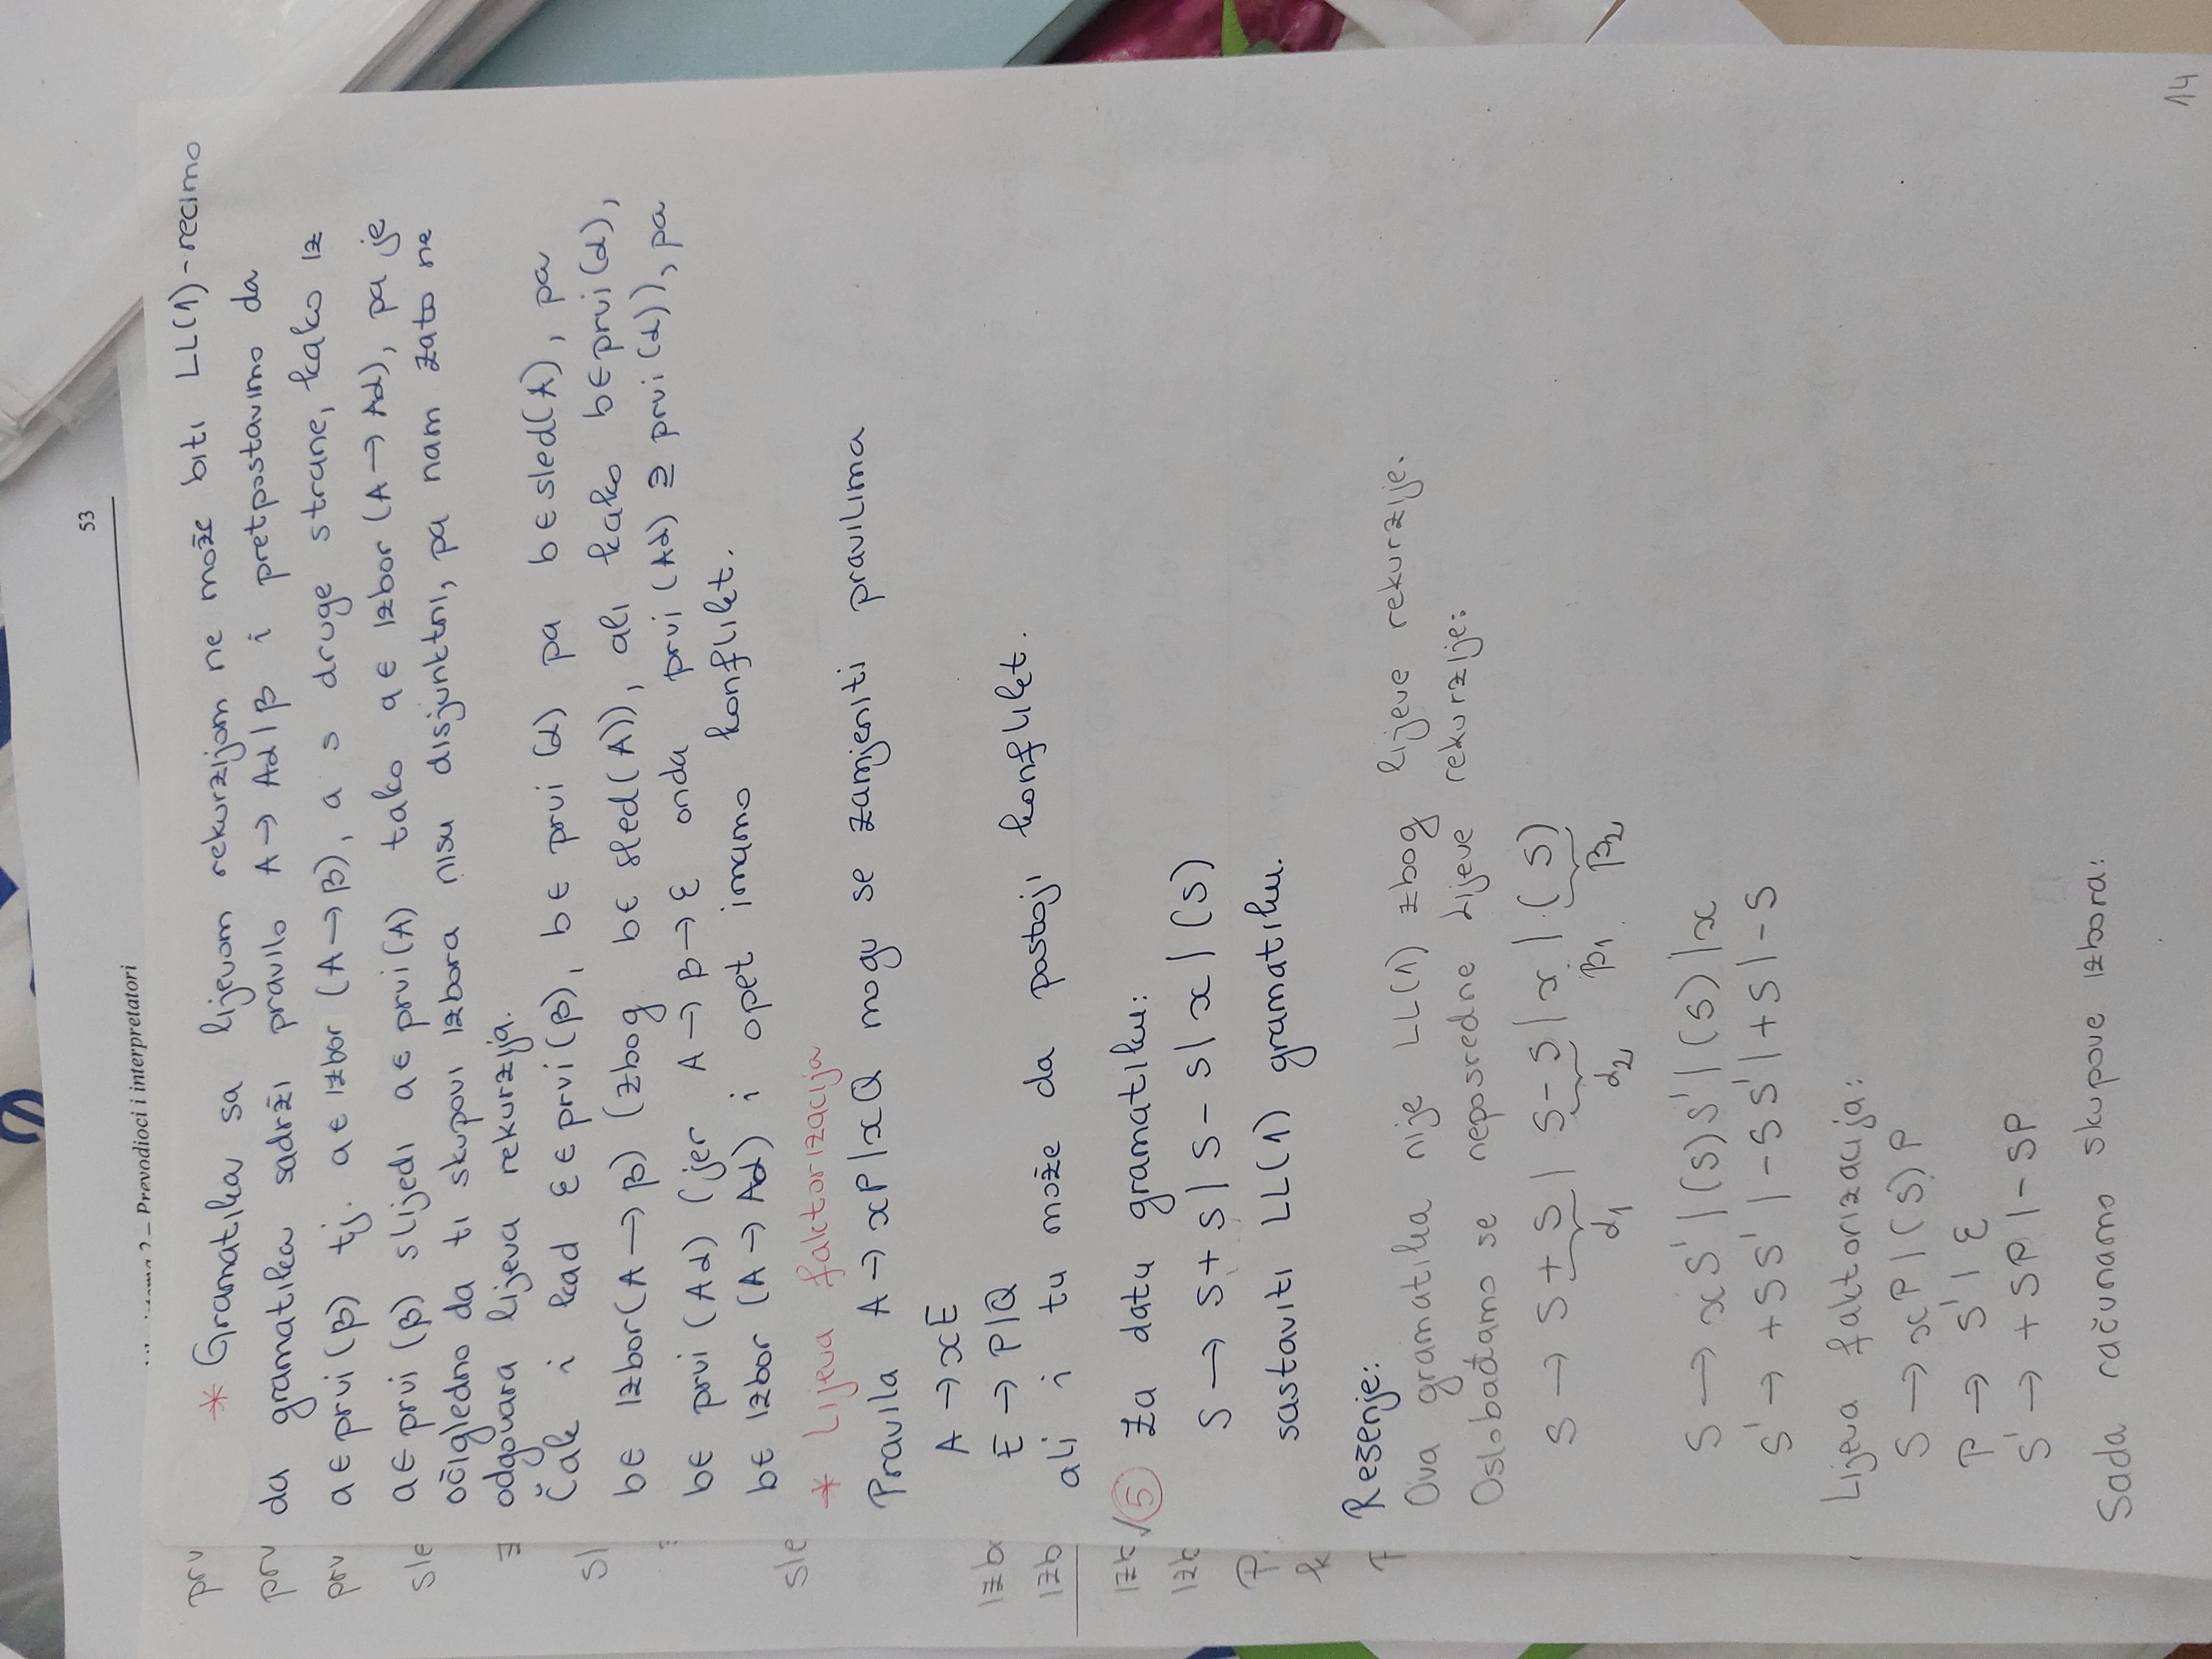 53
2 – Prevodioci i interpretatori
* Gramatika sa lijevom rekurzijom ne može biti LL(1)-recimo
da gramatika sadrži pravilo A → Aα | β i pretpostavimo da
a ∈ prvi(β) tj. a ∈ izbor (A → β), a s druge strane, kako iz
a ∈ prvi (β) slijedi a ∈ prvi(A) tako a ∈ izbor (A → Aα), pa je
očigledno da ti skupovi izbora nisu disjunktni, pa nam zato ne
odgovara lijeva rekurzija.
Čak i kad ε ∈ prvi(β), b ∈ prvi (α) pa b ∈ sled(A), pa
b ∈ izbor(A → β) (zbog b ∈ sled(A)), ali kako b ∈ prvi(α),
b ∈ prvi (Aα) (jer A → β → ε onda prvi (Aα) ⊇ prvi (α)), pa
b ∈ izbor (A → Aα) i opet imamo konflikt.
* Lijeva faktorizacija
Pravila A → xP | xQ mogu se zamjeniti pravilima
A → xE
E → P|Q
ali i tu može da postoji konflikt.
√ 5 Za datu gramatiku:
S → S+S | S-S | x | (S)
sastaviti LL(1) gramatiku.
Rešenje:
Ova gramatika nije LL(1) zbog lijeve rekurzije.
Oslobađamo se neposredne lijeve rekurzije:
S → S+S | S-S | x | (S)
α1 α2 β1 β2
S → xS' | (S)S' | (S) | x
S' → +SS' | -SS' | +S | -S
Lijeva faktorizacija:
S → xP | (S)P
P → S' | ε
S' → +SP | -SP
Sada računamo skupove izbora:
14
prv
prv
prv
sle
sl
sle
Izbo
Izb
Izb
Izb
P.
k